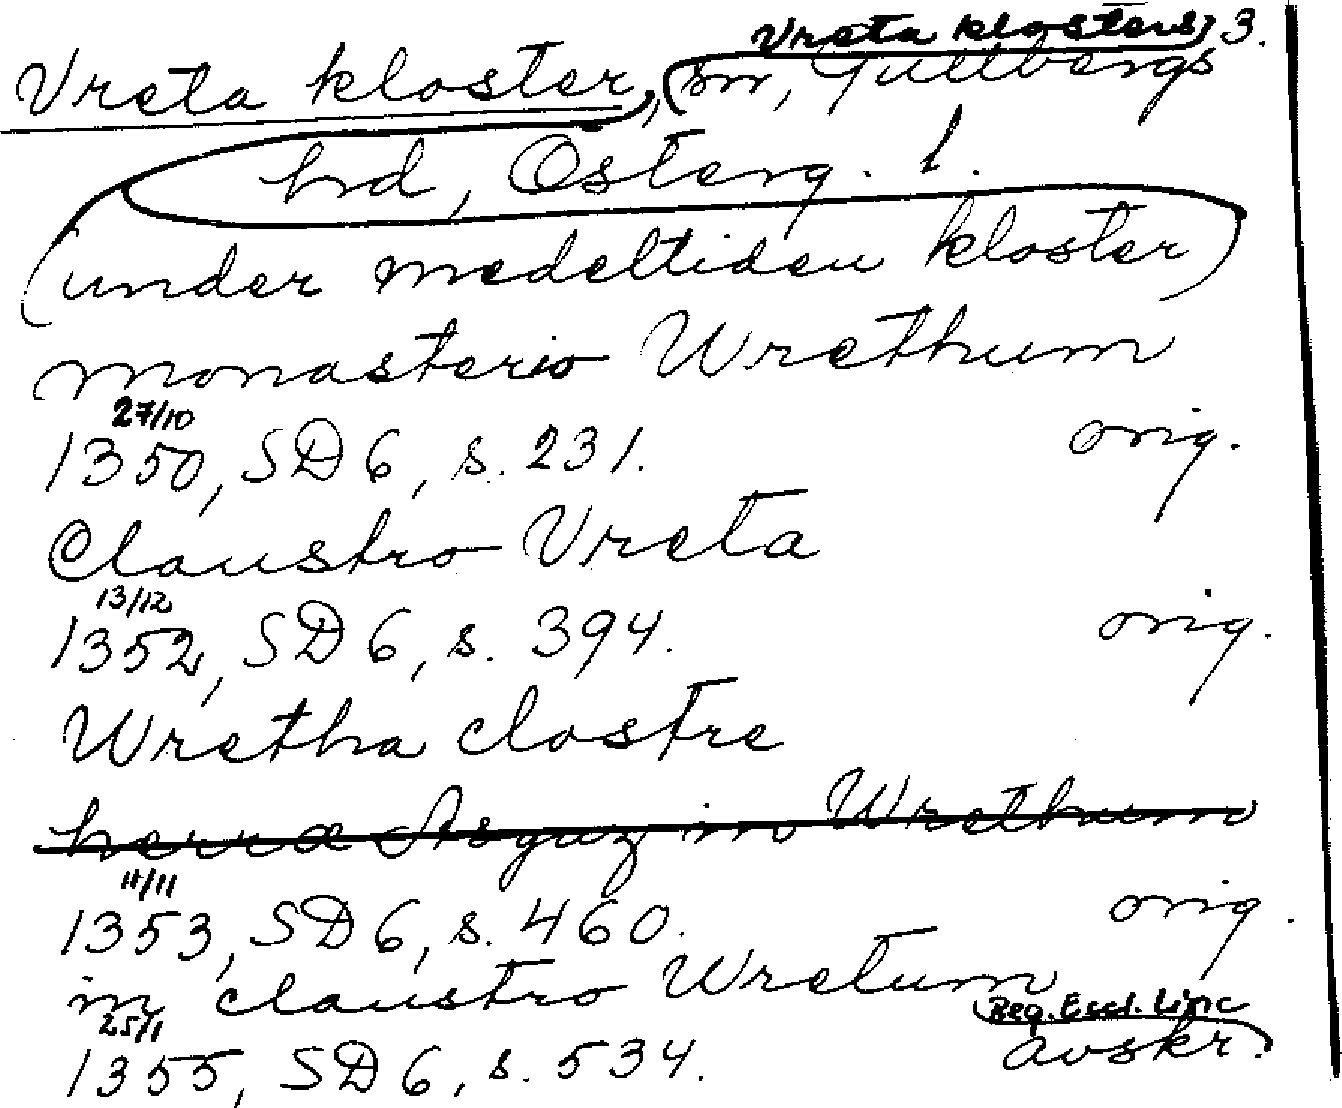 Vreta klosters, 3.
Vreta kloster, sn, Gullbergs
hd, Österg. l.
(under medeltiden kloster)
monasterio Wrethum
27/10
1350, SD 6, s. 231. orig.
Claustro Vreta
13/12
1352, SD 6, s. 394. orig.
Wretha clostre
herra in Wrethum
11/11
1353, SD 6, s. 460. orig.
in claustro Wretum
25/1 Reg. Eccl. Linc
1355, SD 6, s. 534. avskr.